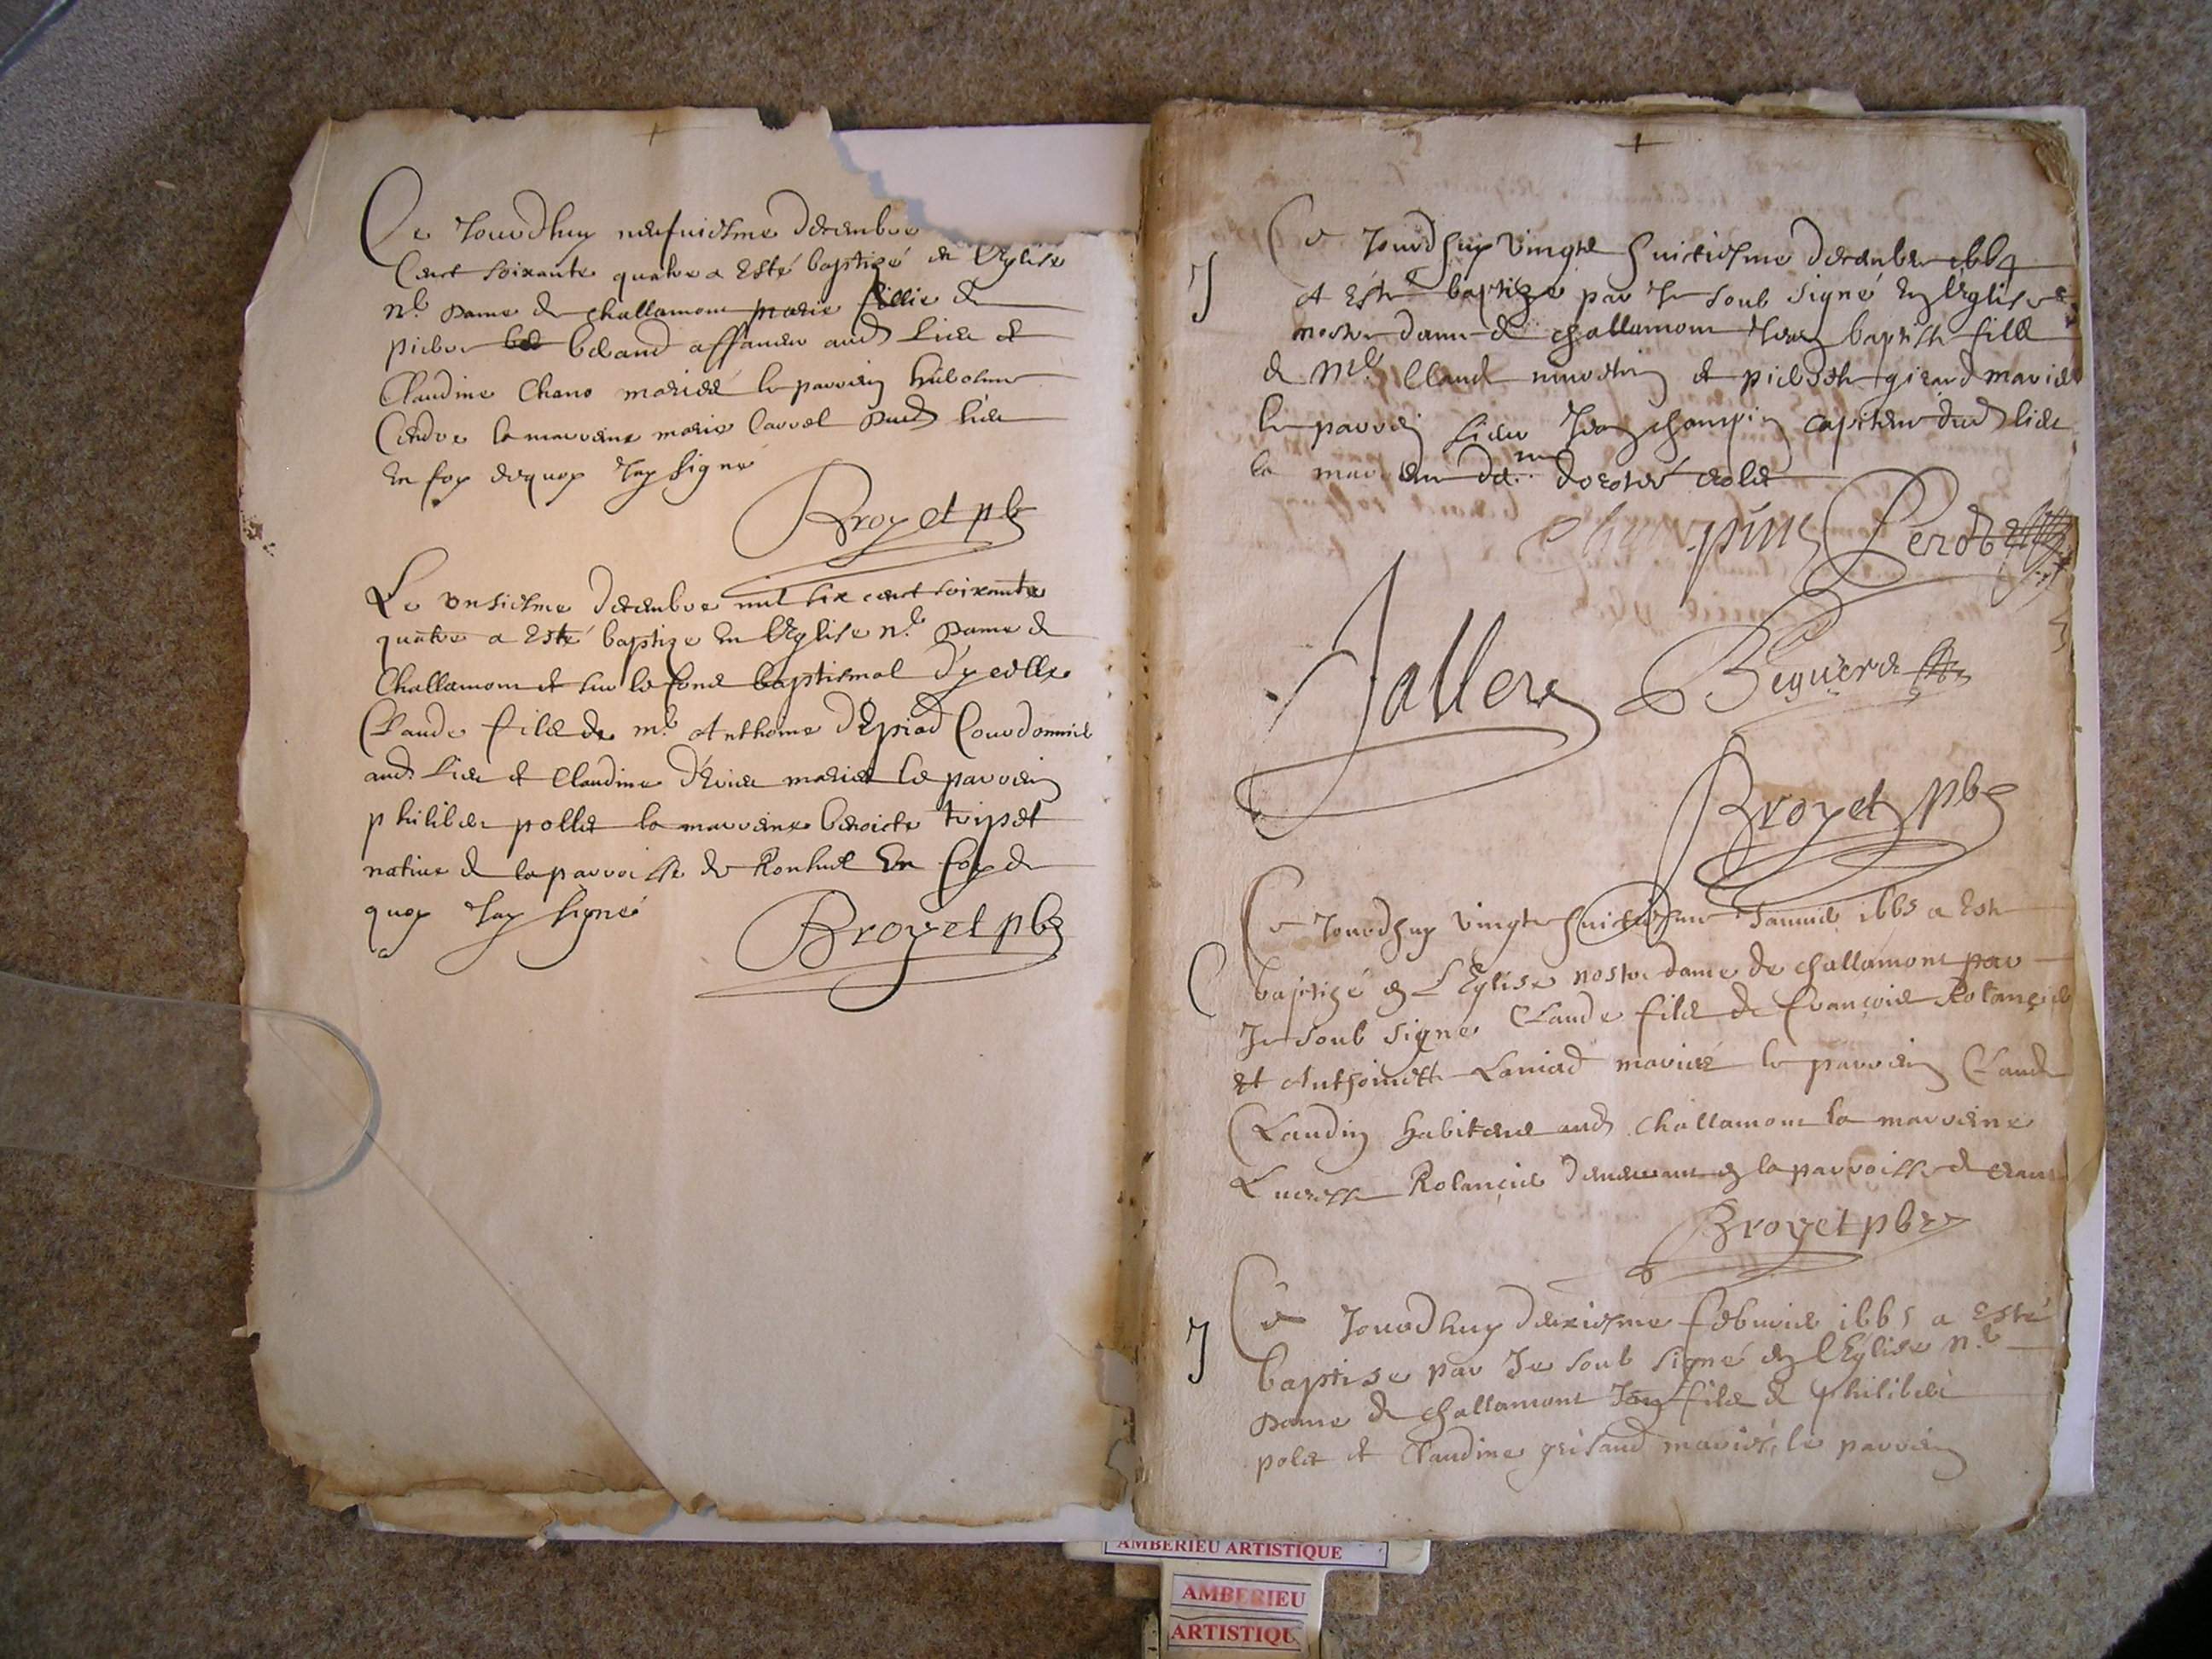 Ce Jourdhuy neufuiesme decembre
Cent soixante quatre a esté baptizé en l'Eglise
nre Dame de challamont marie fillie de
pierre beland affaneu aud lieu et
Claudine Chano mariés le parrein
la marreine marie Carrel dud lieu
En foy dequoy Jay signé
Broyet pbr
Le onsiesme decembre mil six cent soixante
quatre a esté baptize en l'Eglise nre Dame de
Challamont et sur le fond baptismal d'ycelle
Claude filz de mre Anthoine Courdonnier
aud. lieu et Claudine mariez le parrein
philiber pollet la marreine benoiste tripet
natiue de la parroisse de Ronhuel En foy de
quoy Jay signé
Broyet pbr
Ce Jourdhuy vingte huictiesme decembre 1664
A esté baptizé par Je soub signé En l'Eglise
nostre dame de challamont Jean baptiste filz
de Mre Claude et girard mariez
le parrein sieur Jean champin capiteine dud lieu
la marreine
Champin Perodz
Jallere Beguere
Broyet pbr
Ce Jourdhuy vingte huictiesme Januier 1665 a esté
baptizé en L'Eglise nostre dame de challamont par
Je soub signé Claude filz de françois Rolancier
et Anthoinette Laniad mariez le parrein Claude
Claudin habitant aud Challamont la marreine
Lucresse Rolancier demeurant en la parroisse de crans
Broyet pbr
Ce Jourdhuy deuxiesme febvrier 1665 a esté
baptisé par Je soub signé en l'Eglise nre
Dame de challamont Jean filz de philibert
polet et Claudine grisaud mariés, le parrein
AMBERIEU ARTISTIQUE
AMBERIEU
ARTISTIQU